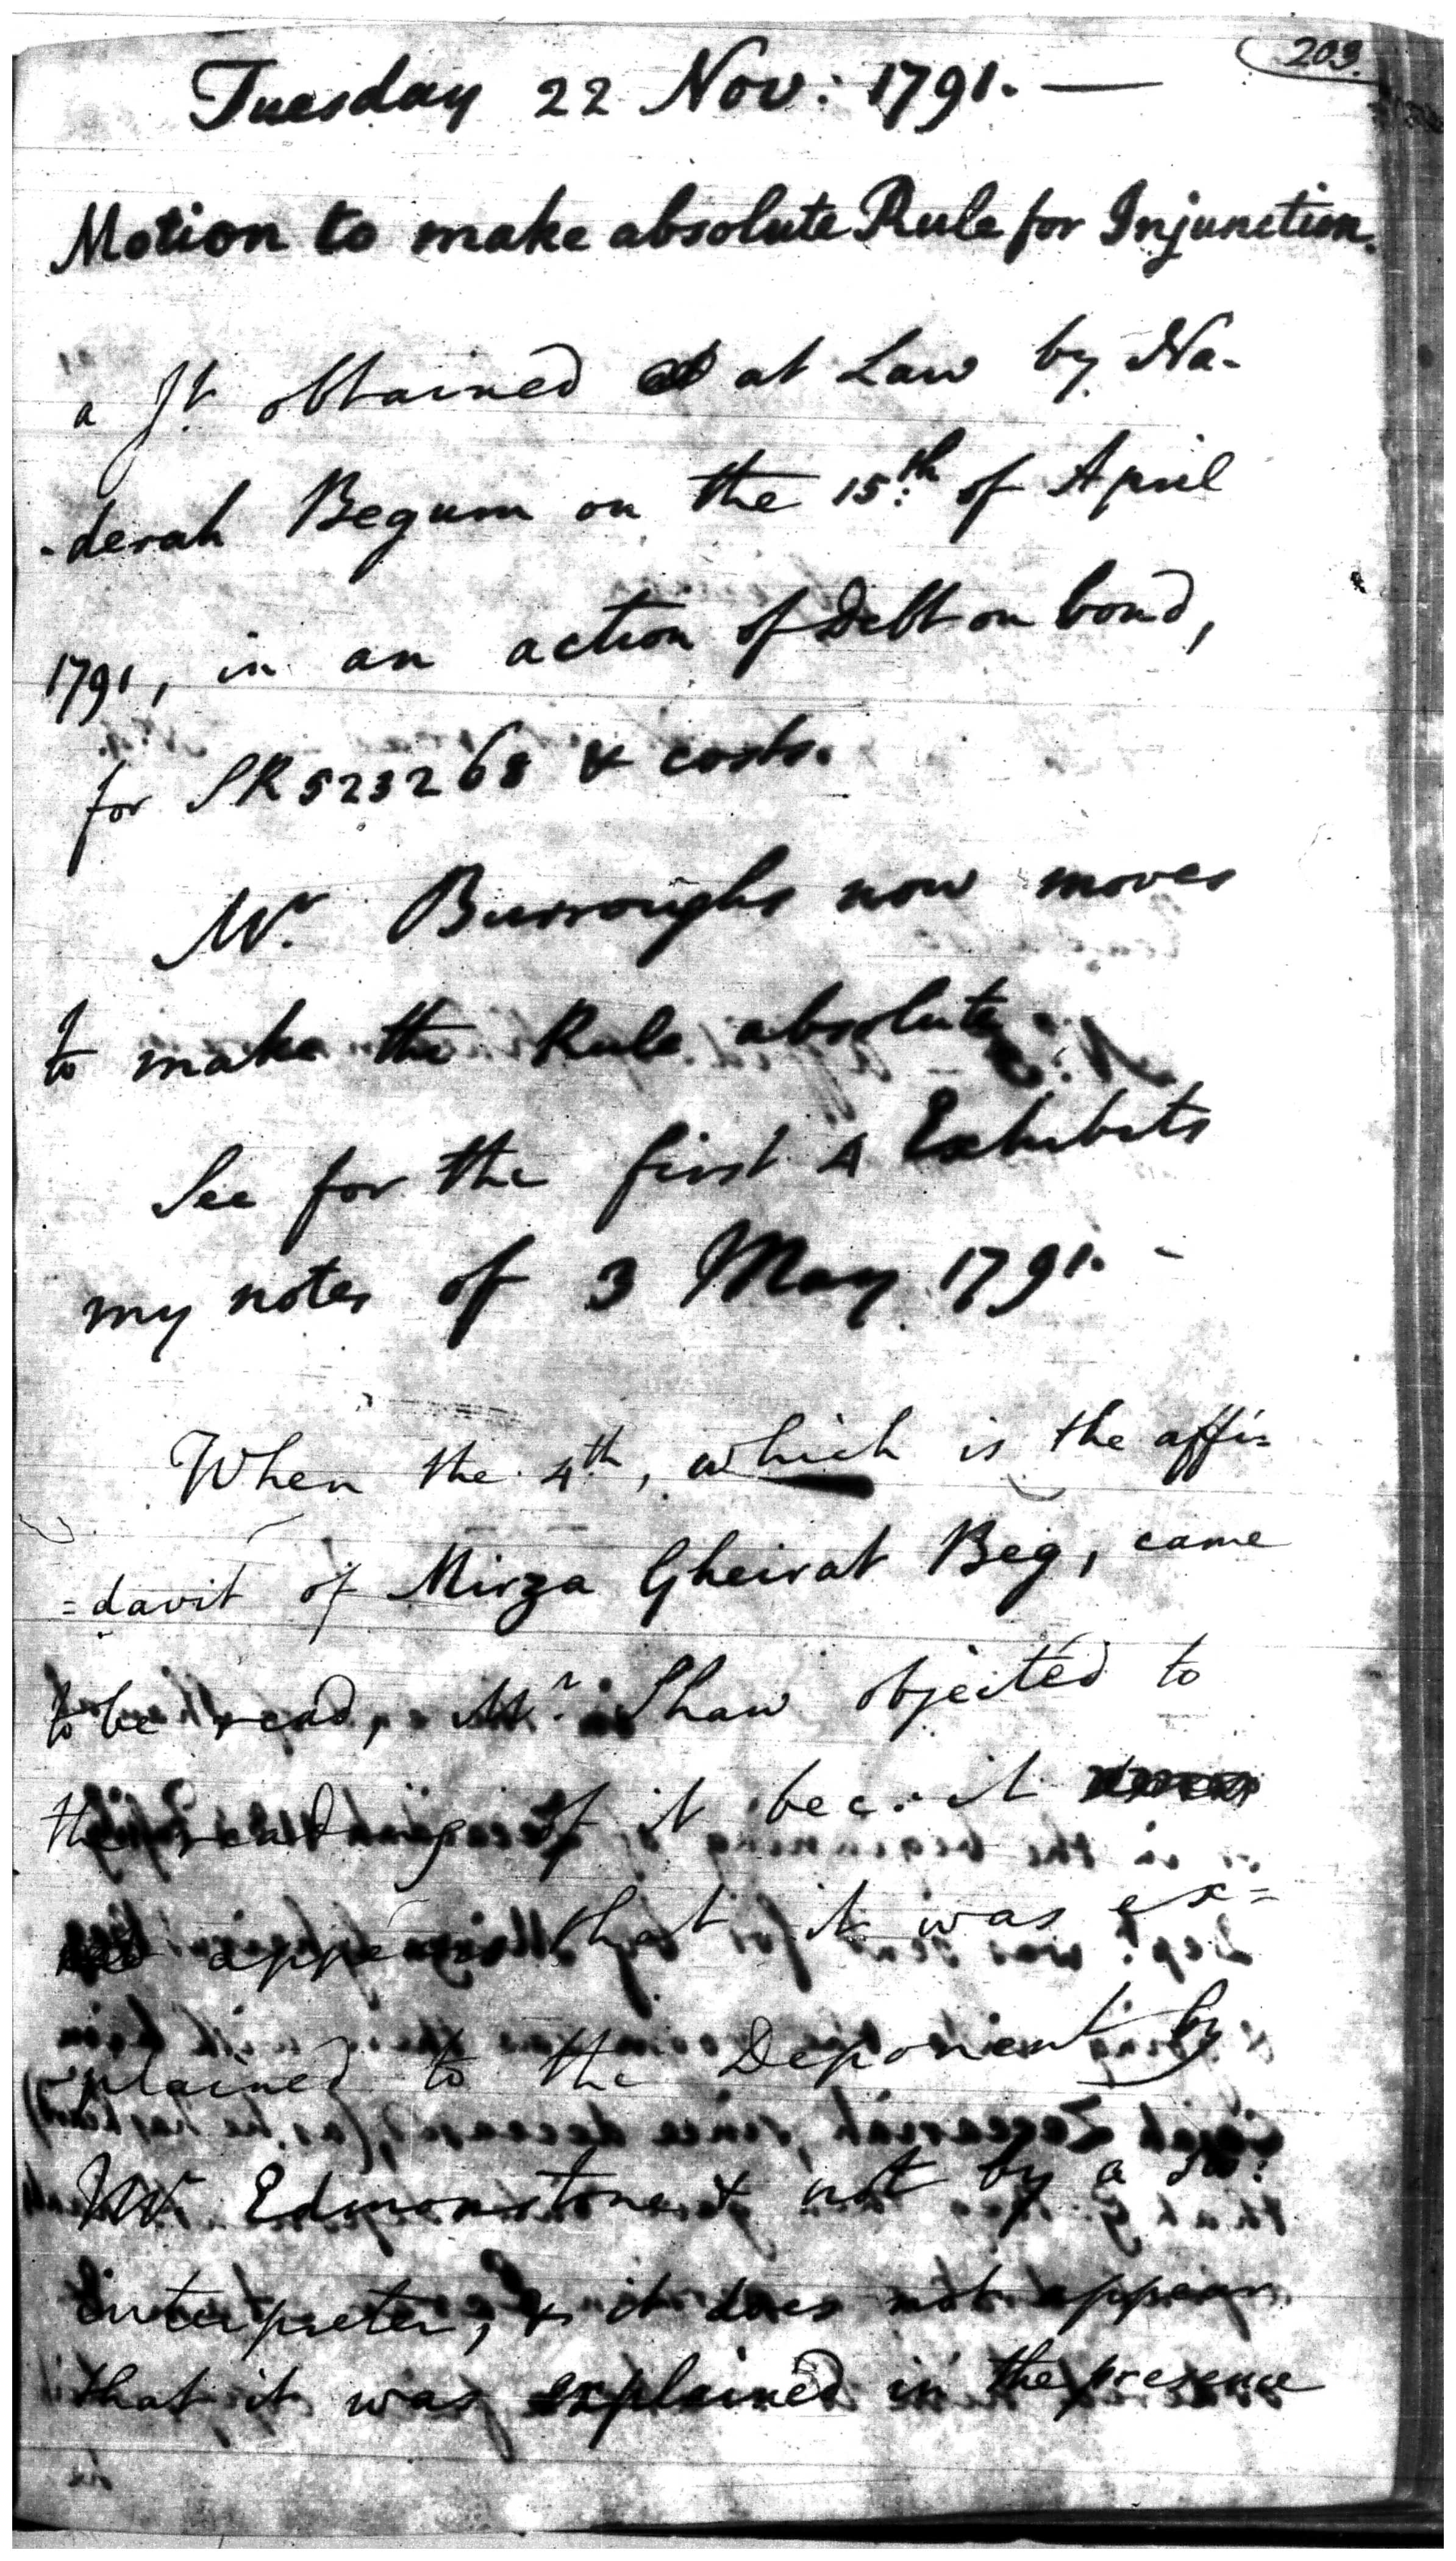 203.
Tuesday 22 Nov: 1791. —
Motion to make absolute Rule for Injunction.
a Jt. obtained at Law by Na-
-derah Begum on the 15th of April
1791, in an action of Debt on bond,
for SR 523268 & costs.
Mr. Burroughs now moves
to make the Rule absolute.
See for the first 4 Exhibits
my notes of 3 May 1791. -
When the 4th, which is the affi=
=davit of Mirza Gheirat Beg, came
to be read, Mr. Shaw objected to
the reading of it bec. it
appears that it was ex=
plained to the Deponent by
Mr. Edmonstone & not by a
Interpreter, & it does not appear
that it was explained in the presence